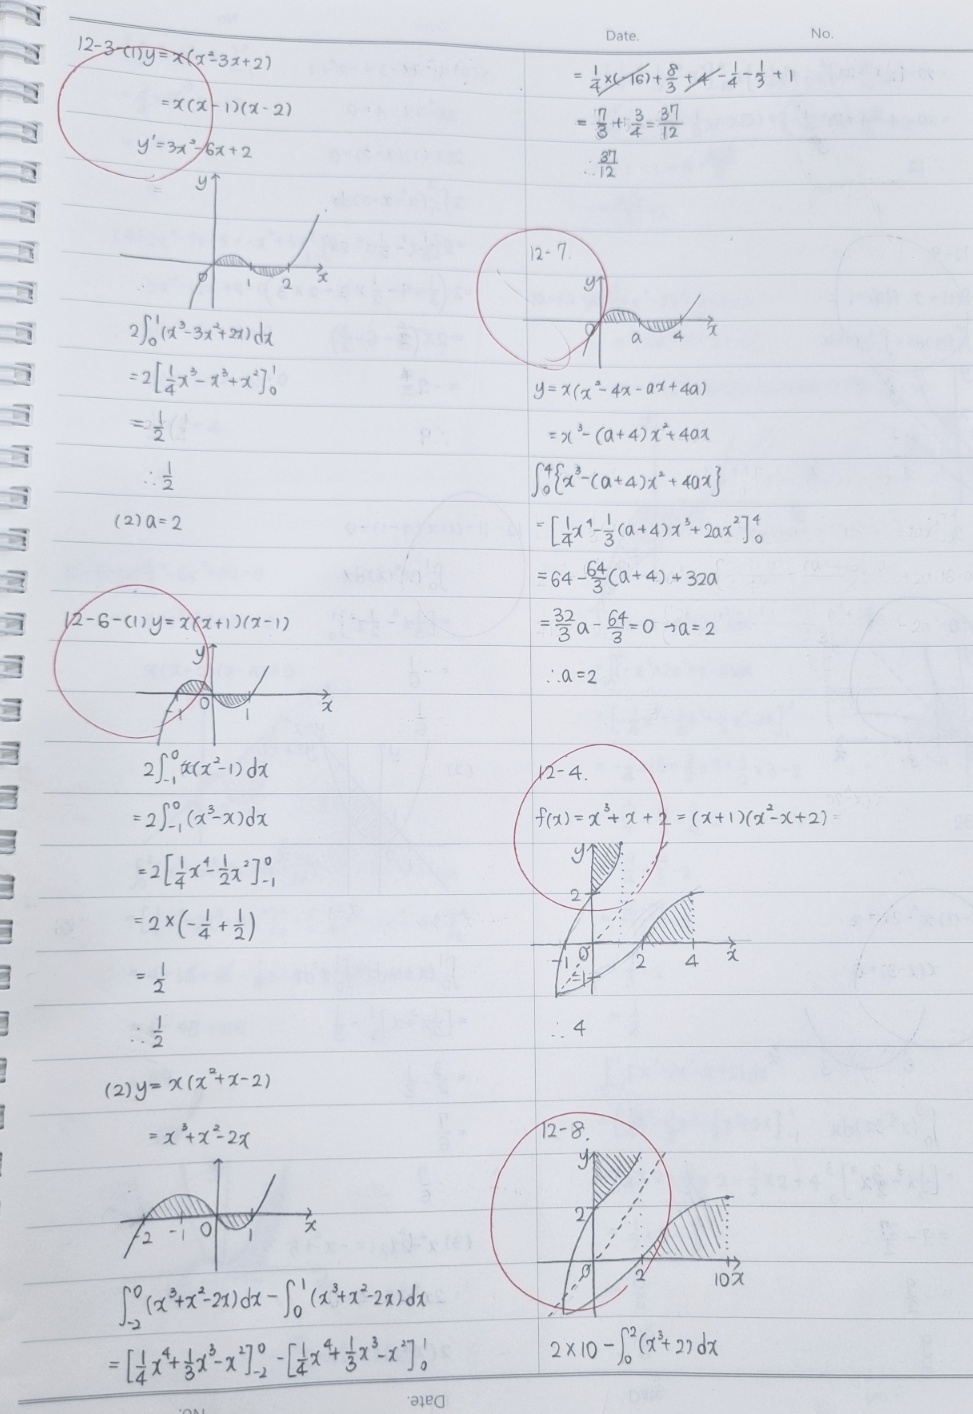 12-3-(1) y = x(x²-3x+2)
= x(x-1)(x-2)
y' = 3x²-6x+2
y
0 1 2 x
2∫₀¹(x³-3x²+2x)dx
= 2[1/4x³-x³+x²]₀¹
= 1/2
∴ 1/2
(2) a = 2
12-6-(1) y = x(x+1)(x-1)
y
-1 0 1 x
2∫₋₁⁰ x(x²-1)dx
= 2∫₋₁⁰(x³-x)dx
= 2[1/4x⁴-1/2x²]₋₁⁰
= 2×(-1/4+1/2)
= 1/2
∴ 1/2
(2) y = x(x²+x-2)
= x³+x²-2x
-2 -1 0 1 x
∫₋₂⁰(x³+x²-2x)dx - ∫₀¹(x³+x²-2x)dx
= [1/4x⁴+1/3x³-x²]₋₂⁰ - [1/4x⁴+1/3x³-x²]₀¹
Date. No.
= 1/4×(-16)+8/3+4-1/4-1/3+1
= 7/3+3/4=37/12
∴ 37/12
12-7.
y
0 a 4 x
y = x(x²-4x-ax+4a)
= x³-(a+4)x²+4ax
∫₀⁴{x³-(a+4)x²+4ax}
= [1/4x⁴-1/3(a+4)x³+2ax²]₀⁴
= 64-64/3(a+4)+32a
= 32/3a-64/3=0 → a=2
∴ a=2
12-4.
f(x) = x³+x+2 = (x+1)(x²-x+2)
y
2
-1 0 2 4 x
-1
∴ 4
12-8.
y
2
0 2 10 x
2×10-∫₀²(x³+2)dx
Date.
No.